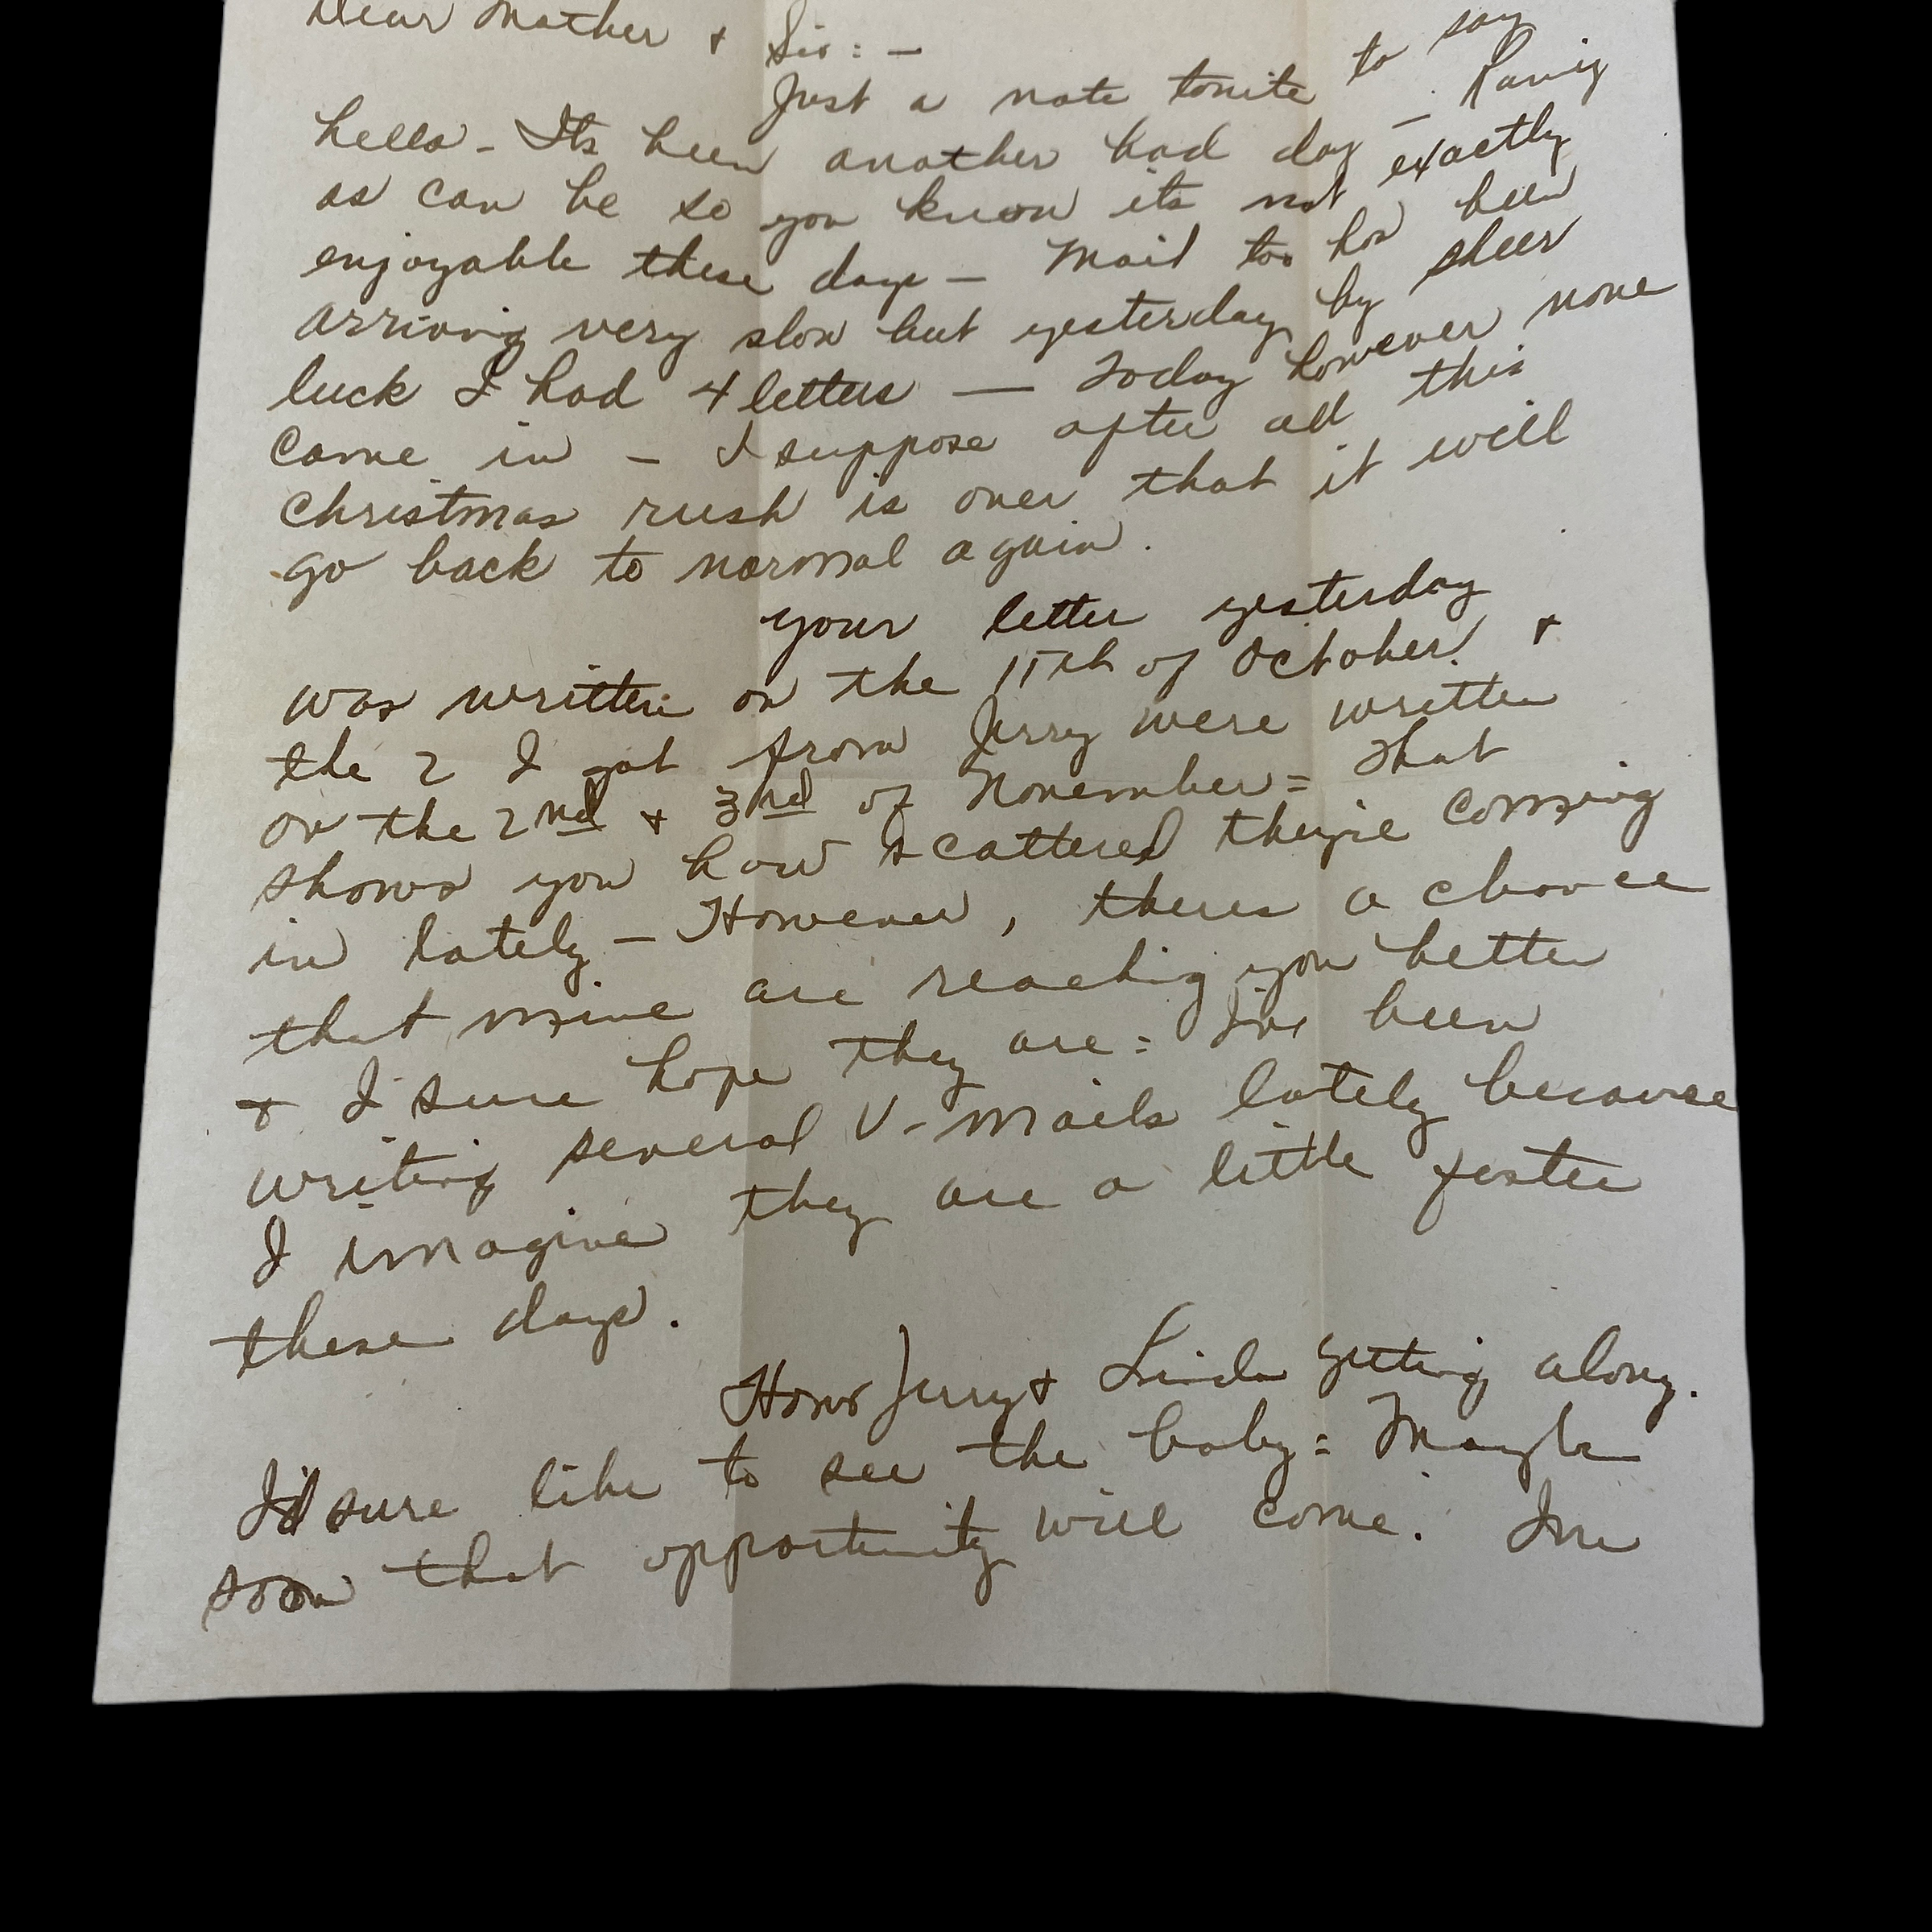 Dear Mother + Sis: —
Just a note tonite to say
hello - Its been another bad day — Rainy
as can be so you know its not exactly
enjoyable these days — Mail too has been
arriving very slow but yesterday by sheer
luck I had 4 letters — Today however none
came in - I suppose after all this
christmas rush is over that it will
go back to normal again.
your letter yesterday
was written on the 15th of October. +
the 2 I got from Jerry were written
on the 2nd + 3rd of November = That
shows you how scattered theyre coming
in lately — However, theres a chance
that mine are reaching you better
+ I sure hope they are = Ive been
writing several V-mails lately because
I imagine they are a little faster
these days.
Hows Jerry + Linda getting along.
I'd sure like to see the baby = Maybe
soon that opportunity will come. Ive